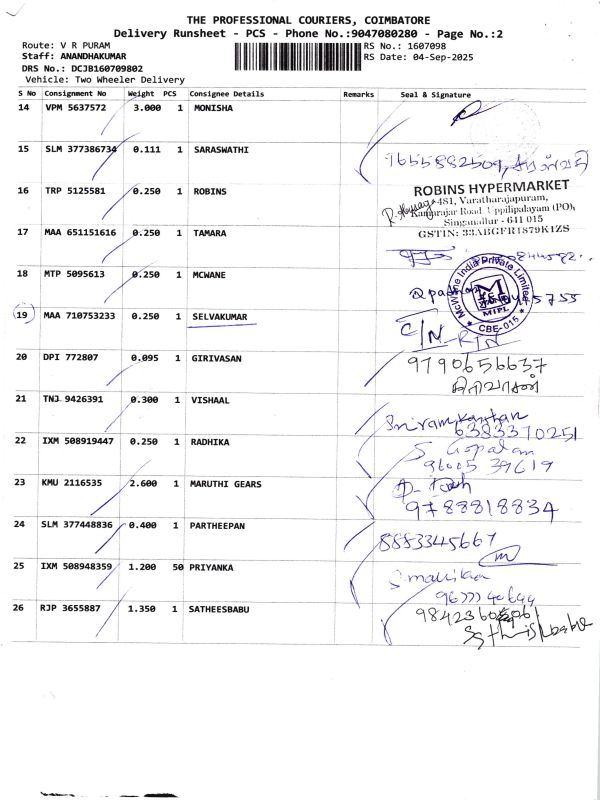 THE PROFESSIONAL COURIERS, COIMBATORE
Delivery Runsheet - PCS - Phone No.:9047080280 - Page No.:2
Route: V R PURAM
RS No.: 1607098
Staff: ANANDHAKUMAR
RS Date: 04-Sep-2025
DRS No.: DCJB160709802
Vehicle: Two Wheeler Delivery
S No Consignment No Weight PCS Consignee Details Remarks Seal & Signature
14 VPM 5637572 3.000 1 MONISHA
15 SLM 377386734 0.111 1 SARASWATHI
9655882509
16 TRP 5125581 0.250 1 ROBINS
ROBINS HYPERMARKET
481, Varatharajapuram,
Kamarajar Road, Uppilipalayam (PO),
Singanallur - 641 015
GSTIN: 33ABGFR1879K1ZS
17 MAA 651151616 0.250 1 TAMARA
18 MTP 5095613 0.250 1 MCWANE
McWane India Private Limited
MIPL
CBE-015
19 MAA 710753233 0.250 1 SELVAKUMAR
C/N-R/N
20 DPI 772807 0.095 1 GIRIVASAN
9790656637
கிரிவாசன்
21 TNJ 9426391 0.300 1 VISHAAL
Sriram Kanthan
6383370251
22 IXM 508919447 0.250 1 RADHIKA
S Gopalam
96005 39619
23 KMU 2116535 2.600 1 MARUTHI GEARS
9788818834
24 SLM 377448836 0.400 1 PARTHEEPAN
8883345667
25 IXM 508948359 1.200 50 PRIYANKA
S mallika
26 RJP 3655887 1.350 1 SATHEESBABU